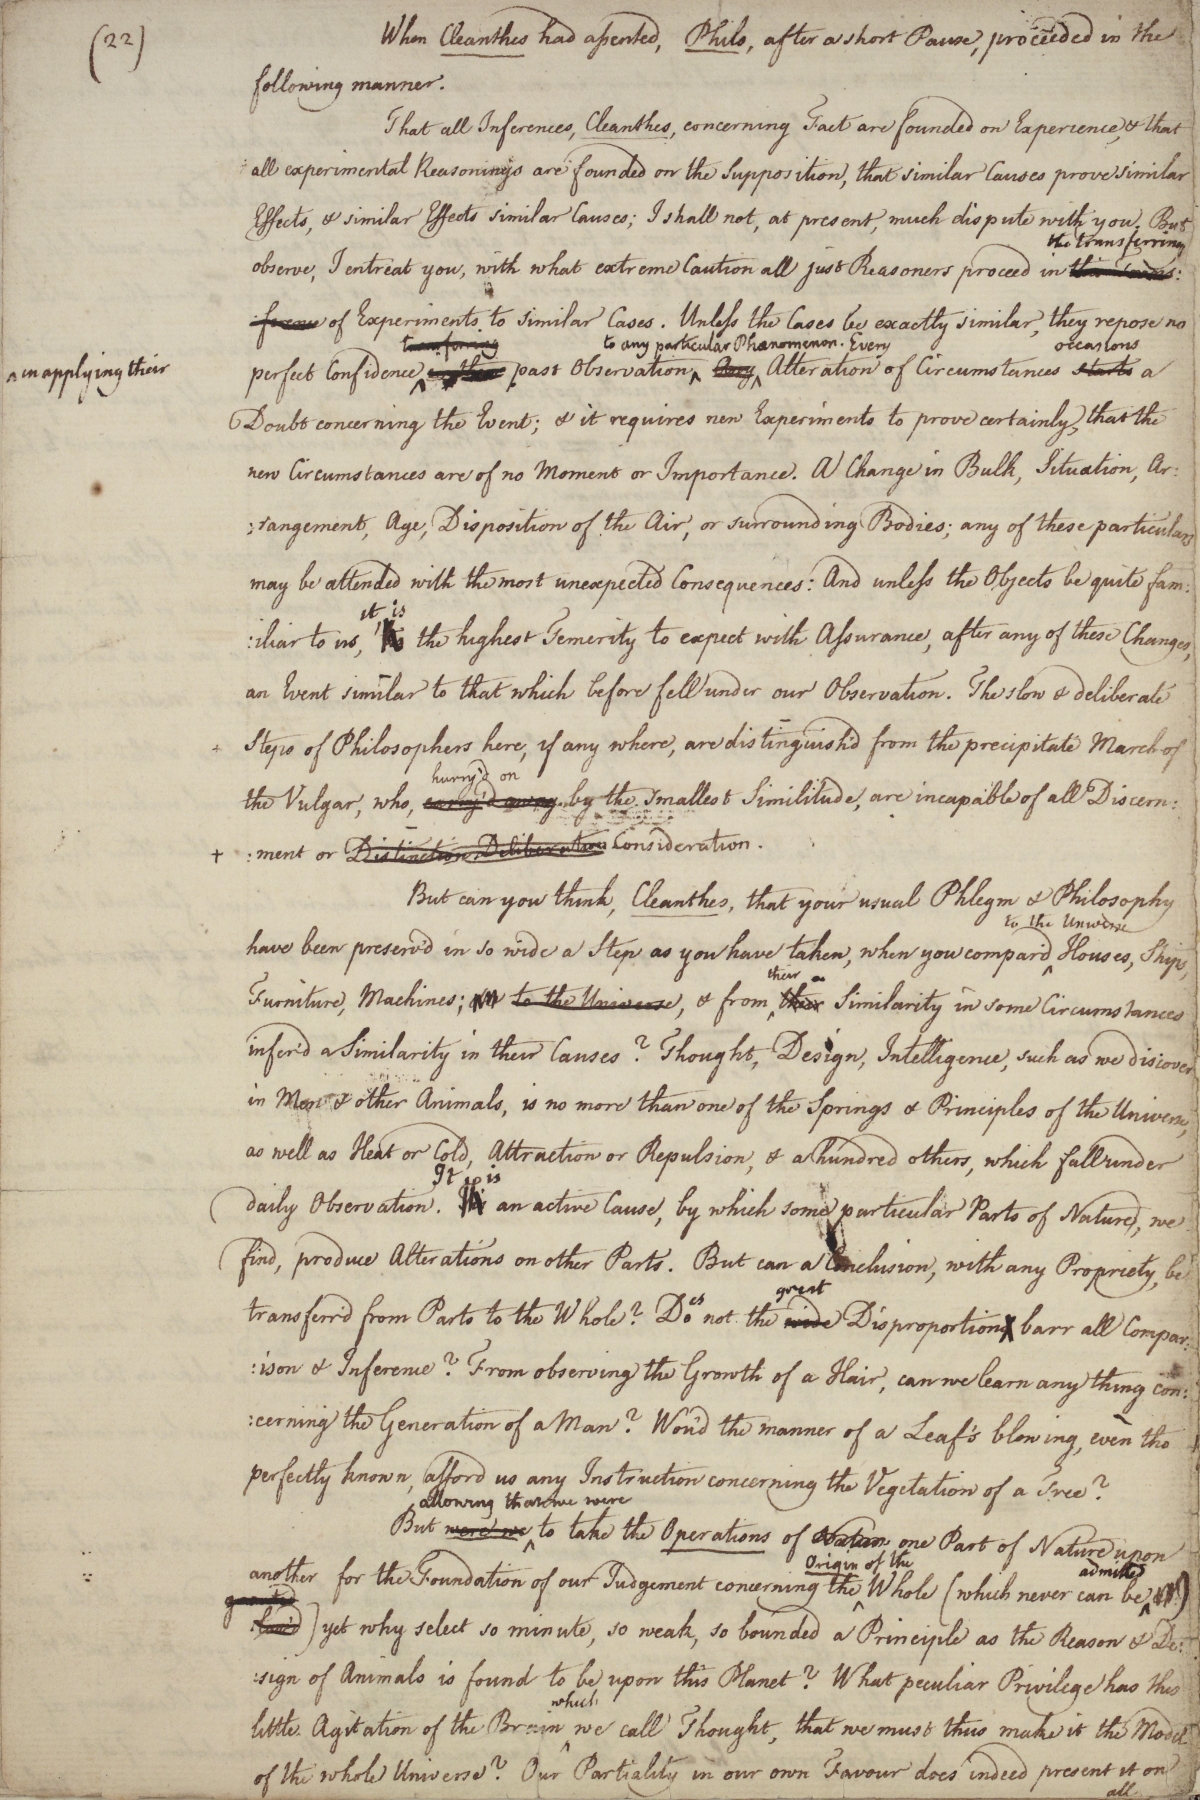 (22)
When Cleanthes had assented, Philo, after a short Pause, proceeded in the
following manner.
That all Inferences, Cleanthes, concerning Fact are founded on Experience, & that
all experimental Reasonings are founded on the Supposition, that similar Causes prove similar
Effects, & similar Effects similar Causes; I shall not, at present, much dispute with you. But
the transferring
observe, I entreat you, with what extreme Caution all just Reasoners proceed in
of Experiments to similar Cases. Unless the Cases be exactly similar, they repose no
transferring to any particular Phænomenon. Every occasions
^ in applying their
perfect Confidence ^ past Observation ^ Any ^ Alteration of Circumstances starts a
Doubt concerning the Event; & it requires new Experiments to prove certainly, that the
new Circumstances are of no Moment or Importance. A Change in Bulk, Situation, Ar:
:rangement, Age, Disposition of the Air, or surrounding Bodies; any of these particulars
may be attended with the most unexpected Consequences: And unless the Objects be quite fam:
it is
:iliar to us, the highest Temerity to expect with Assurance, after any of these Changes,
an Event similar to that which before fell under our Observation. The slow & deliberate
+ Steps of Philosophers here, if any where, are distinguish'd from the precipitate March of
hurry'd on
the Vulgar, who, carry'd away by the smallest Similitude, are incapable of all Discern:
+ :ment or Distinction Deliberation Consideration.
But can you think, Cleanthes, that your usual Phlegm & Philosophy
to the Universe
have been preserv'd in so wide a Step as you have taken, when you compar'd ^ Houses, Ships,
their
Furniture, Machines; to the Universe, & from ^ their Similarity in some Circumstances
infer'd a Similarity in their Causes? Thought, Design, Intelligence, such as we discover
in Men & other Animals, is no more than one of the Springs & Principles of the Universe,
as well as Heat or Cold, Attraction or Repulsion, & a hundred others, which fall under
It is
daily Observation. an active Cause, by which some particular Parts of Nature, we
find, produce Alterations on other Parts. But can a Conclusion, with any Propriety, be
es great
transfer'd from Parts to the Whole? Do not the wide Disproportion barr all Compar:
:ison & Inference? From observing the Growth of a Hair, can we learn any thing con:
:cerning the Generation of a Man? Wou'd the manner of a Leaf's blowing, even tho
perfectly known, afford us any Instruction concerning the Vegetation of a Tree?
allowing that we were
But were we ^ to take the Operations of Nature one Part of Nature upon
Origin of the admitted
another for the Foundation of our Judgement concerning the ^ Whole (which never can be ^ )
) yet why select so minute, so weak, so bounded a Principle as the Reason & De:
:sign of Animals is found to be upon this Planet? What peculiar Privilege has this
which
little Agitation of the Brain ^ we call Thought, that we must thus make it the Model
of the whole Universe? Our Partiality in our own Favour does indeed present it on
all